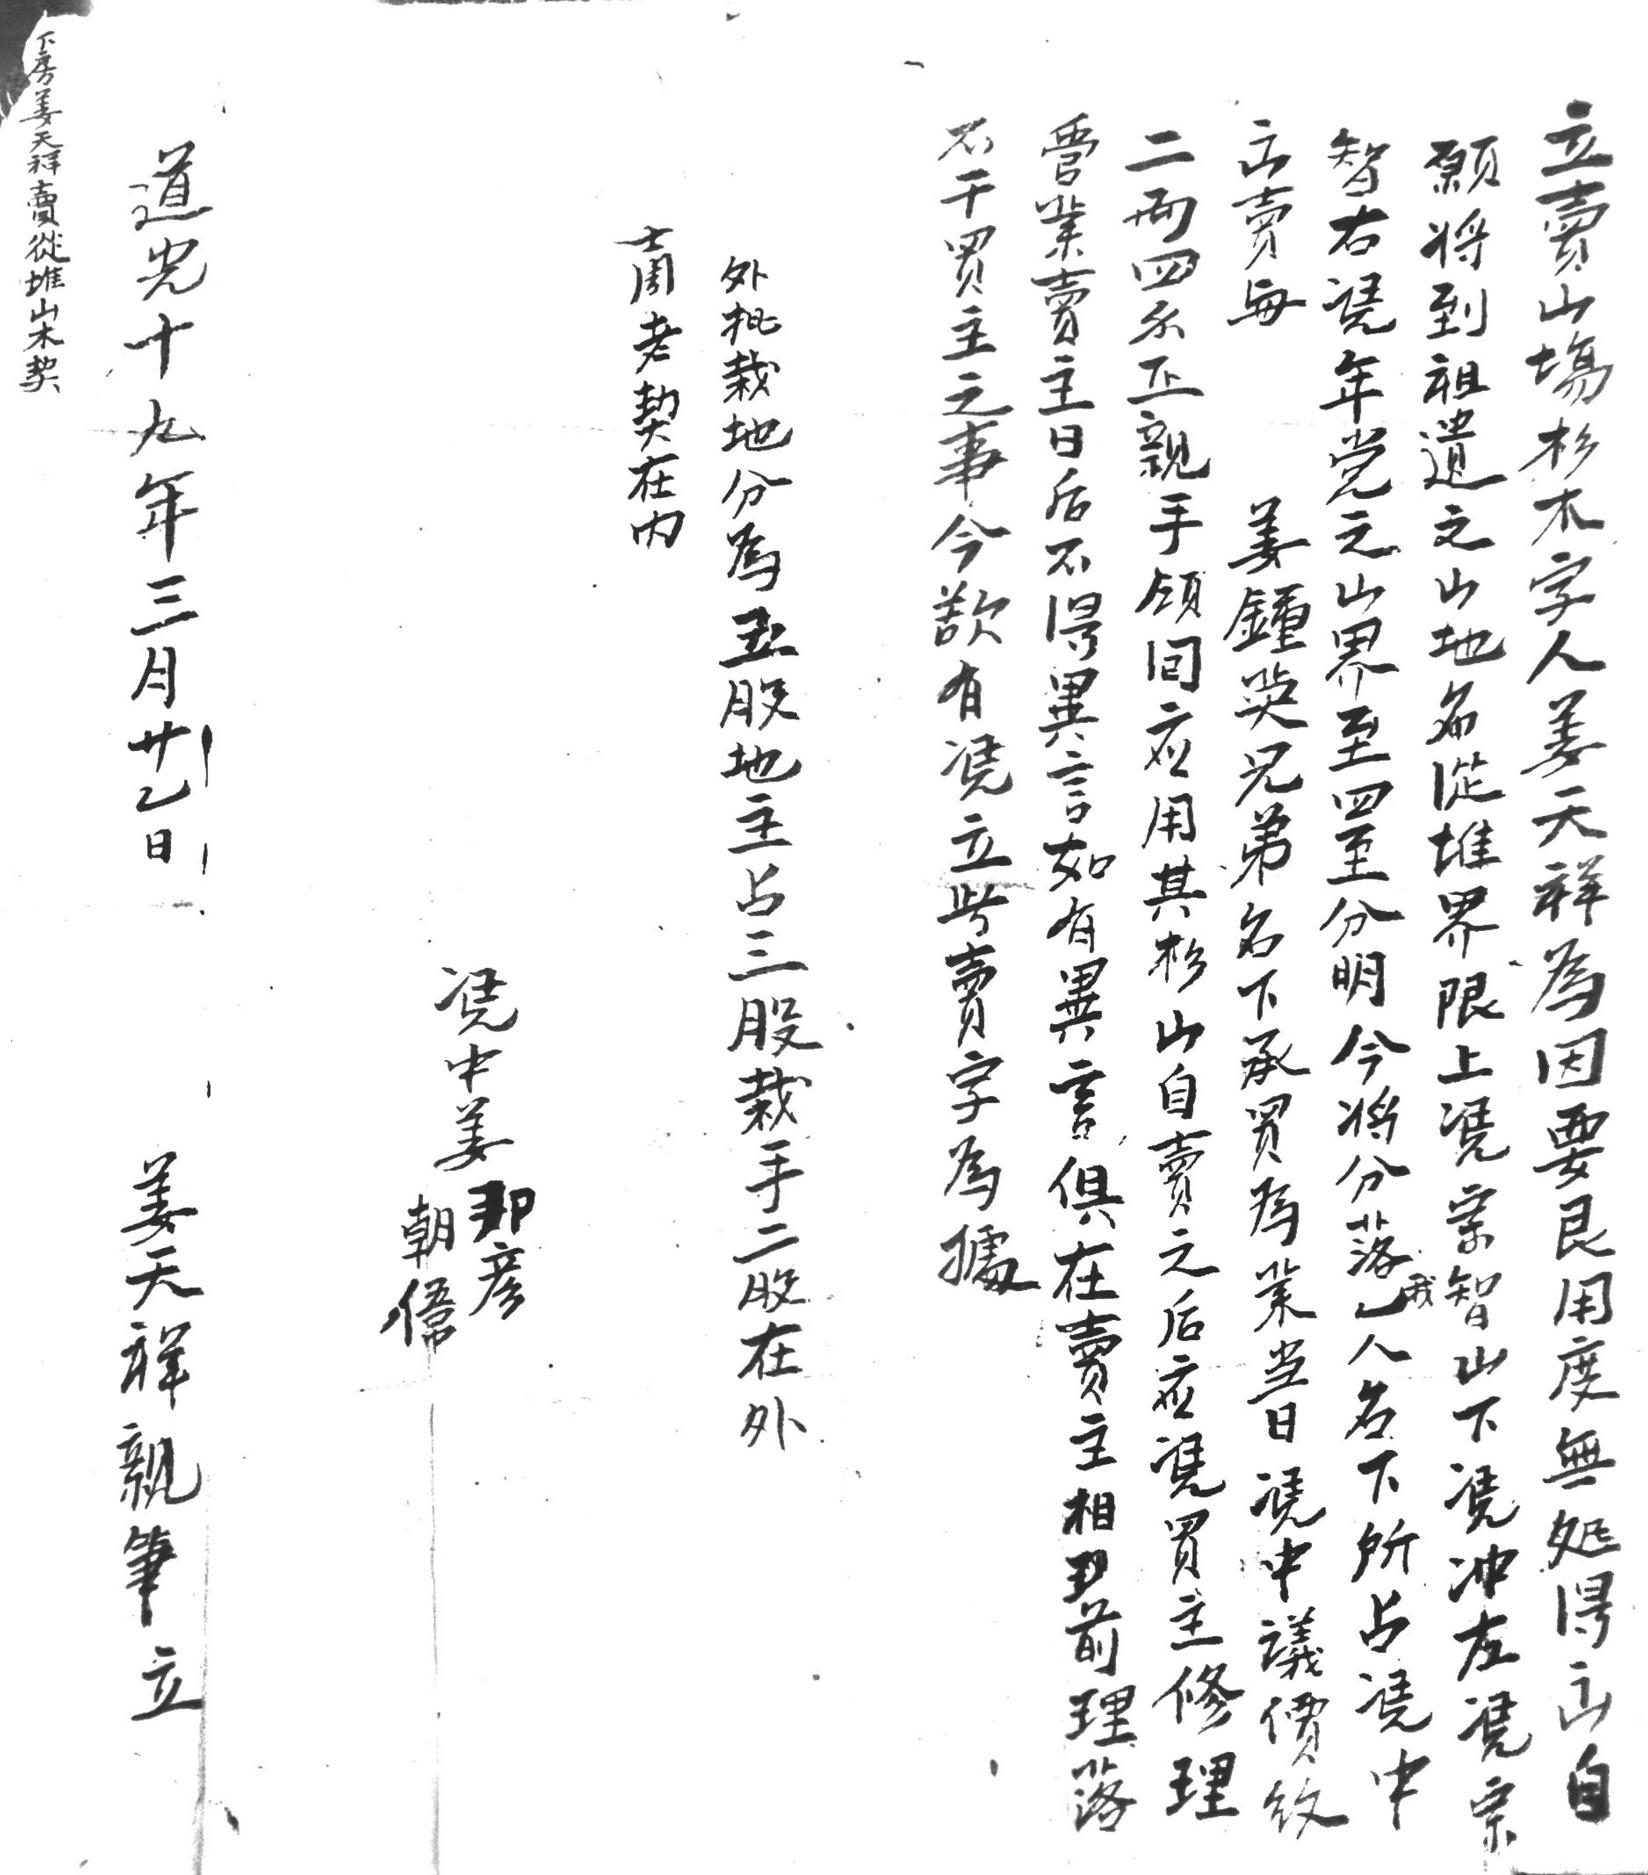 立賣山塲杉木字人姜天祥為因要艮用度無処得出自
願将到祖遺之山地名從堆界限上凴宗智山下凴冲左凴宗
智右凴年党之山界至四至分明今将分落我乙人名下所占凴中
出賣与姜鍾英兄弟名下承買為業当日凴中議價紋
二兩四分正親手領囬应用其杉山自賣之后应凴買主修理
管業賣主日后不得異言如有異言俱在賣主相前理落
不干買主之事今欲有凴立此賣字為據
外批栽地分為五股地主占三股栽手二股在外
老契在内
凴中姜
彦
朝儒
道光十九年三月廿乙日 姜天祥親筆立
下房姜天祥賣從堆山木契